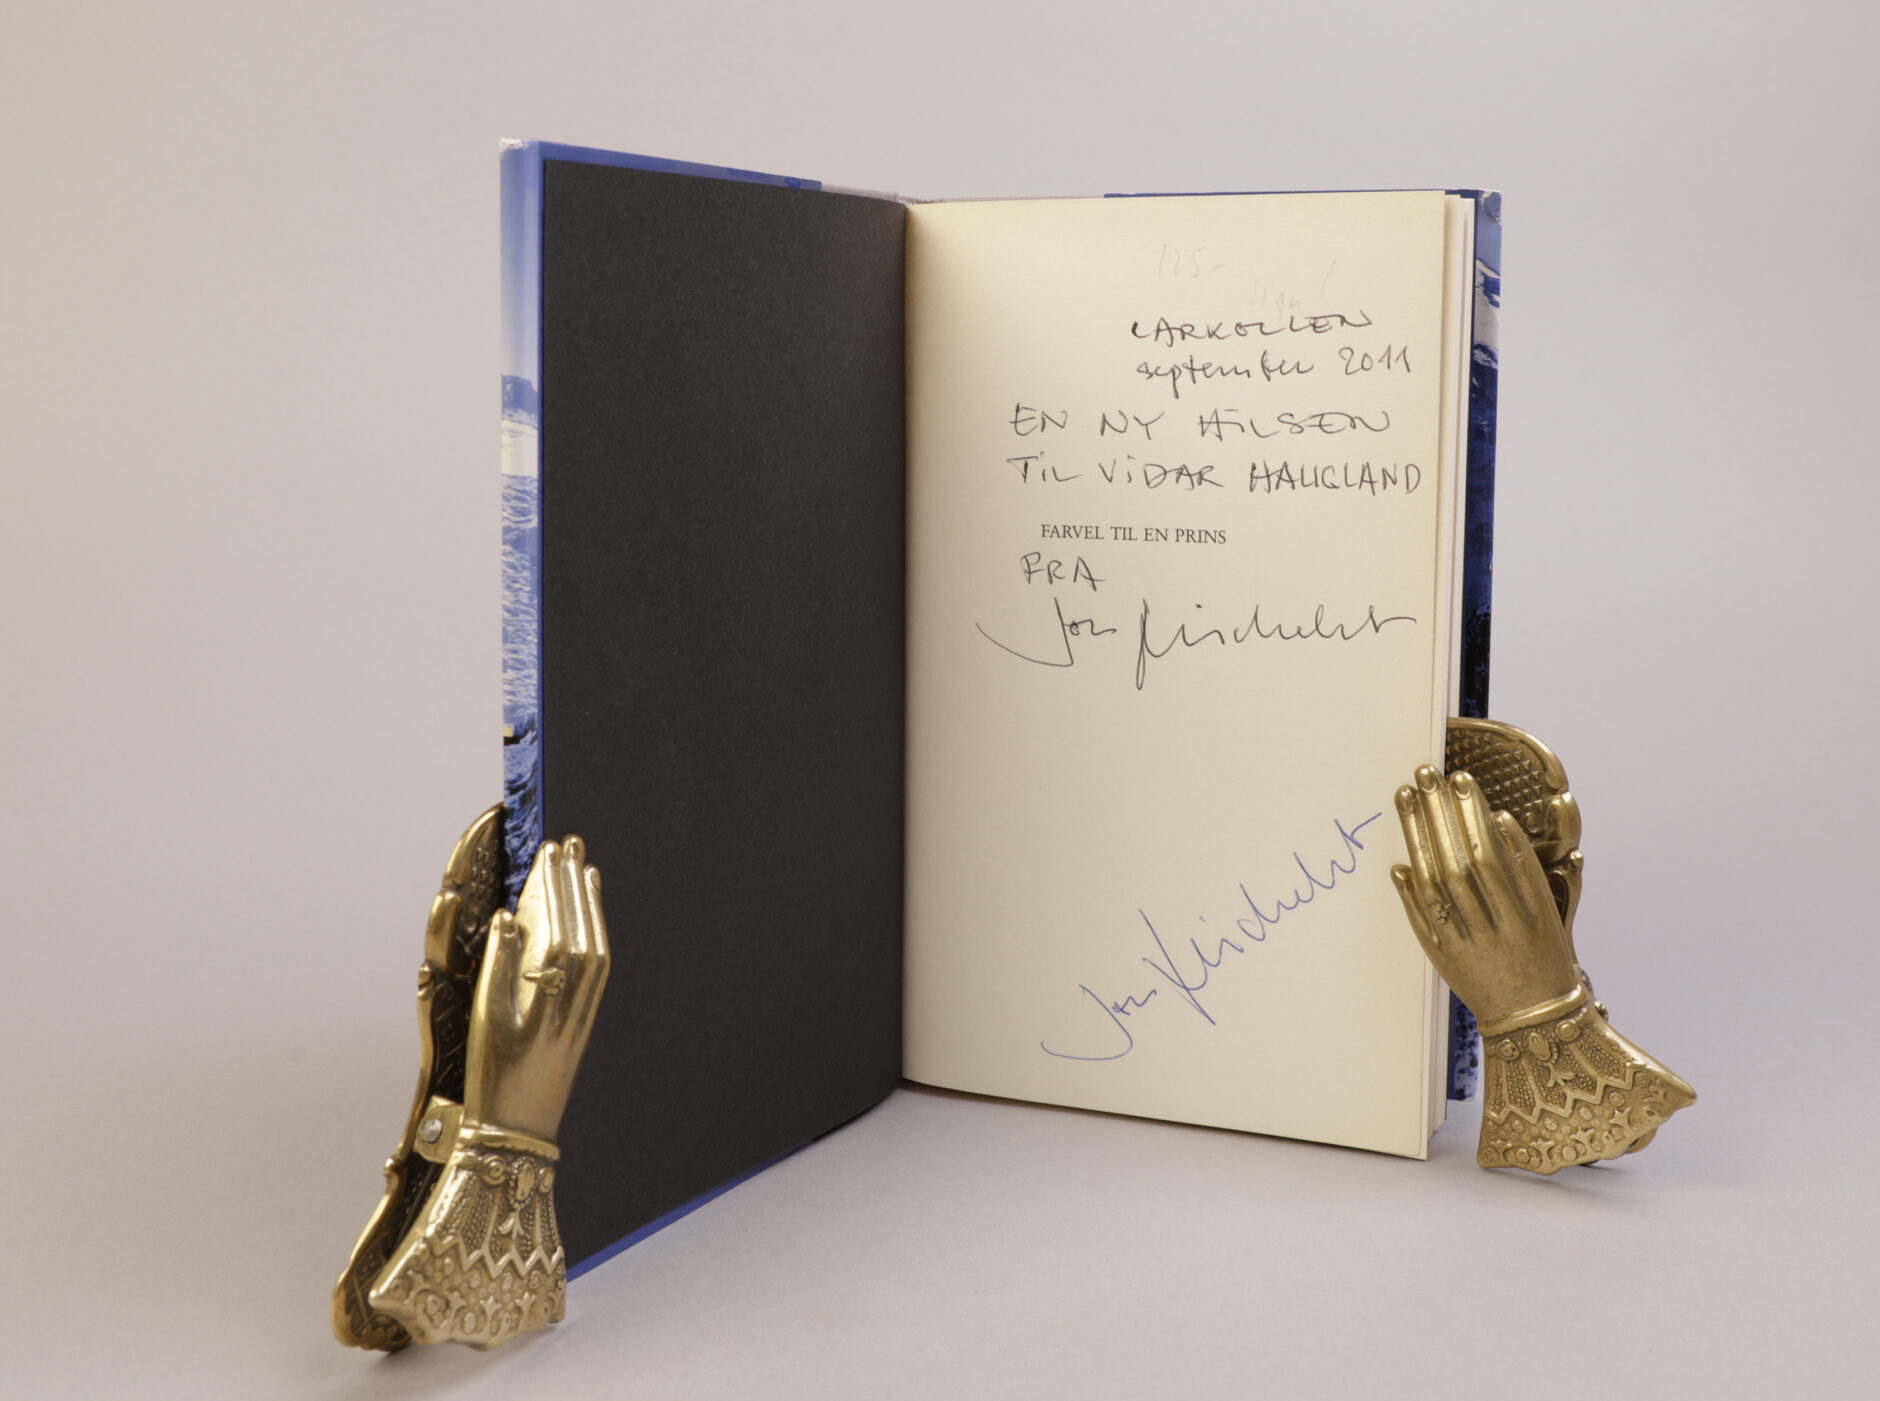 125-
sign
LARKOLLEN
september 2011
EN NY HILSEN
TIL VIDAR HAUGLAND
FARVEL TIL EN PRINS
FRA
Jon Michelet
Jon Michelet